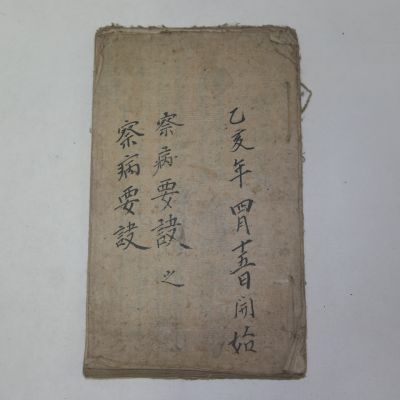 乙亥年 四月十五日 開始
察病要訣之
察病要訣